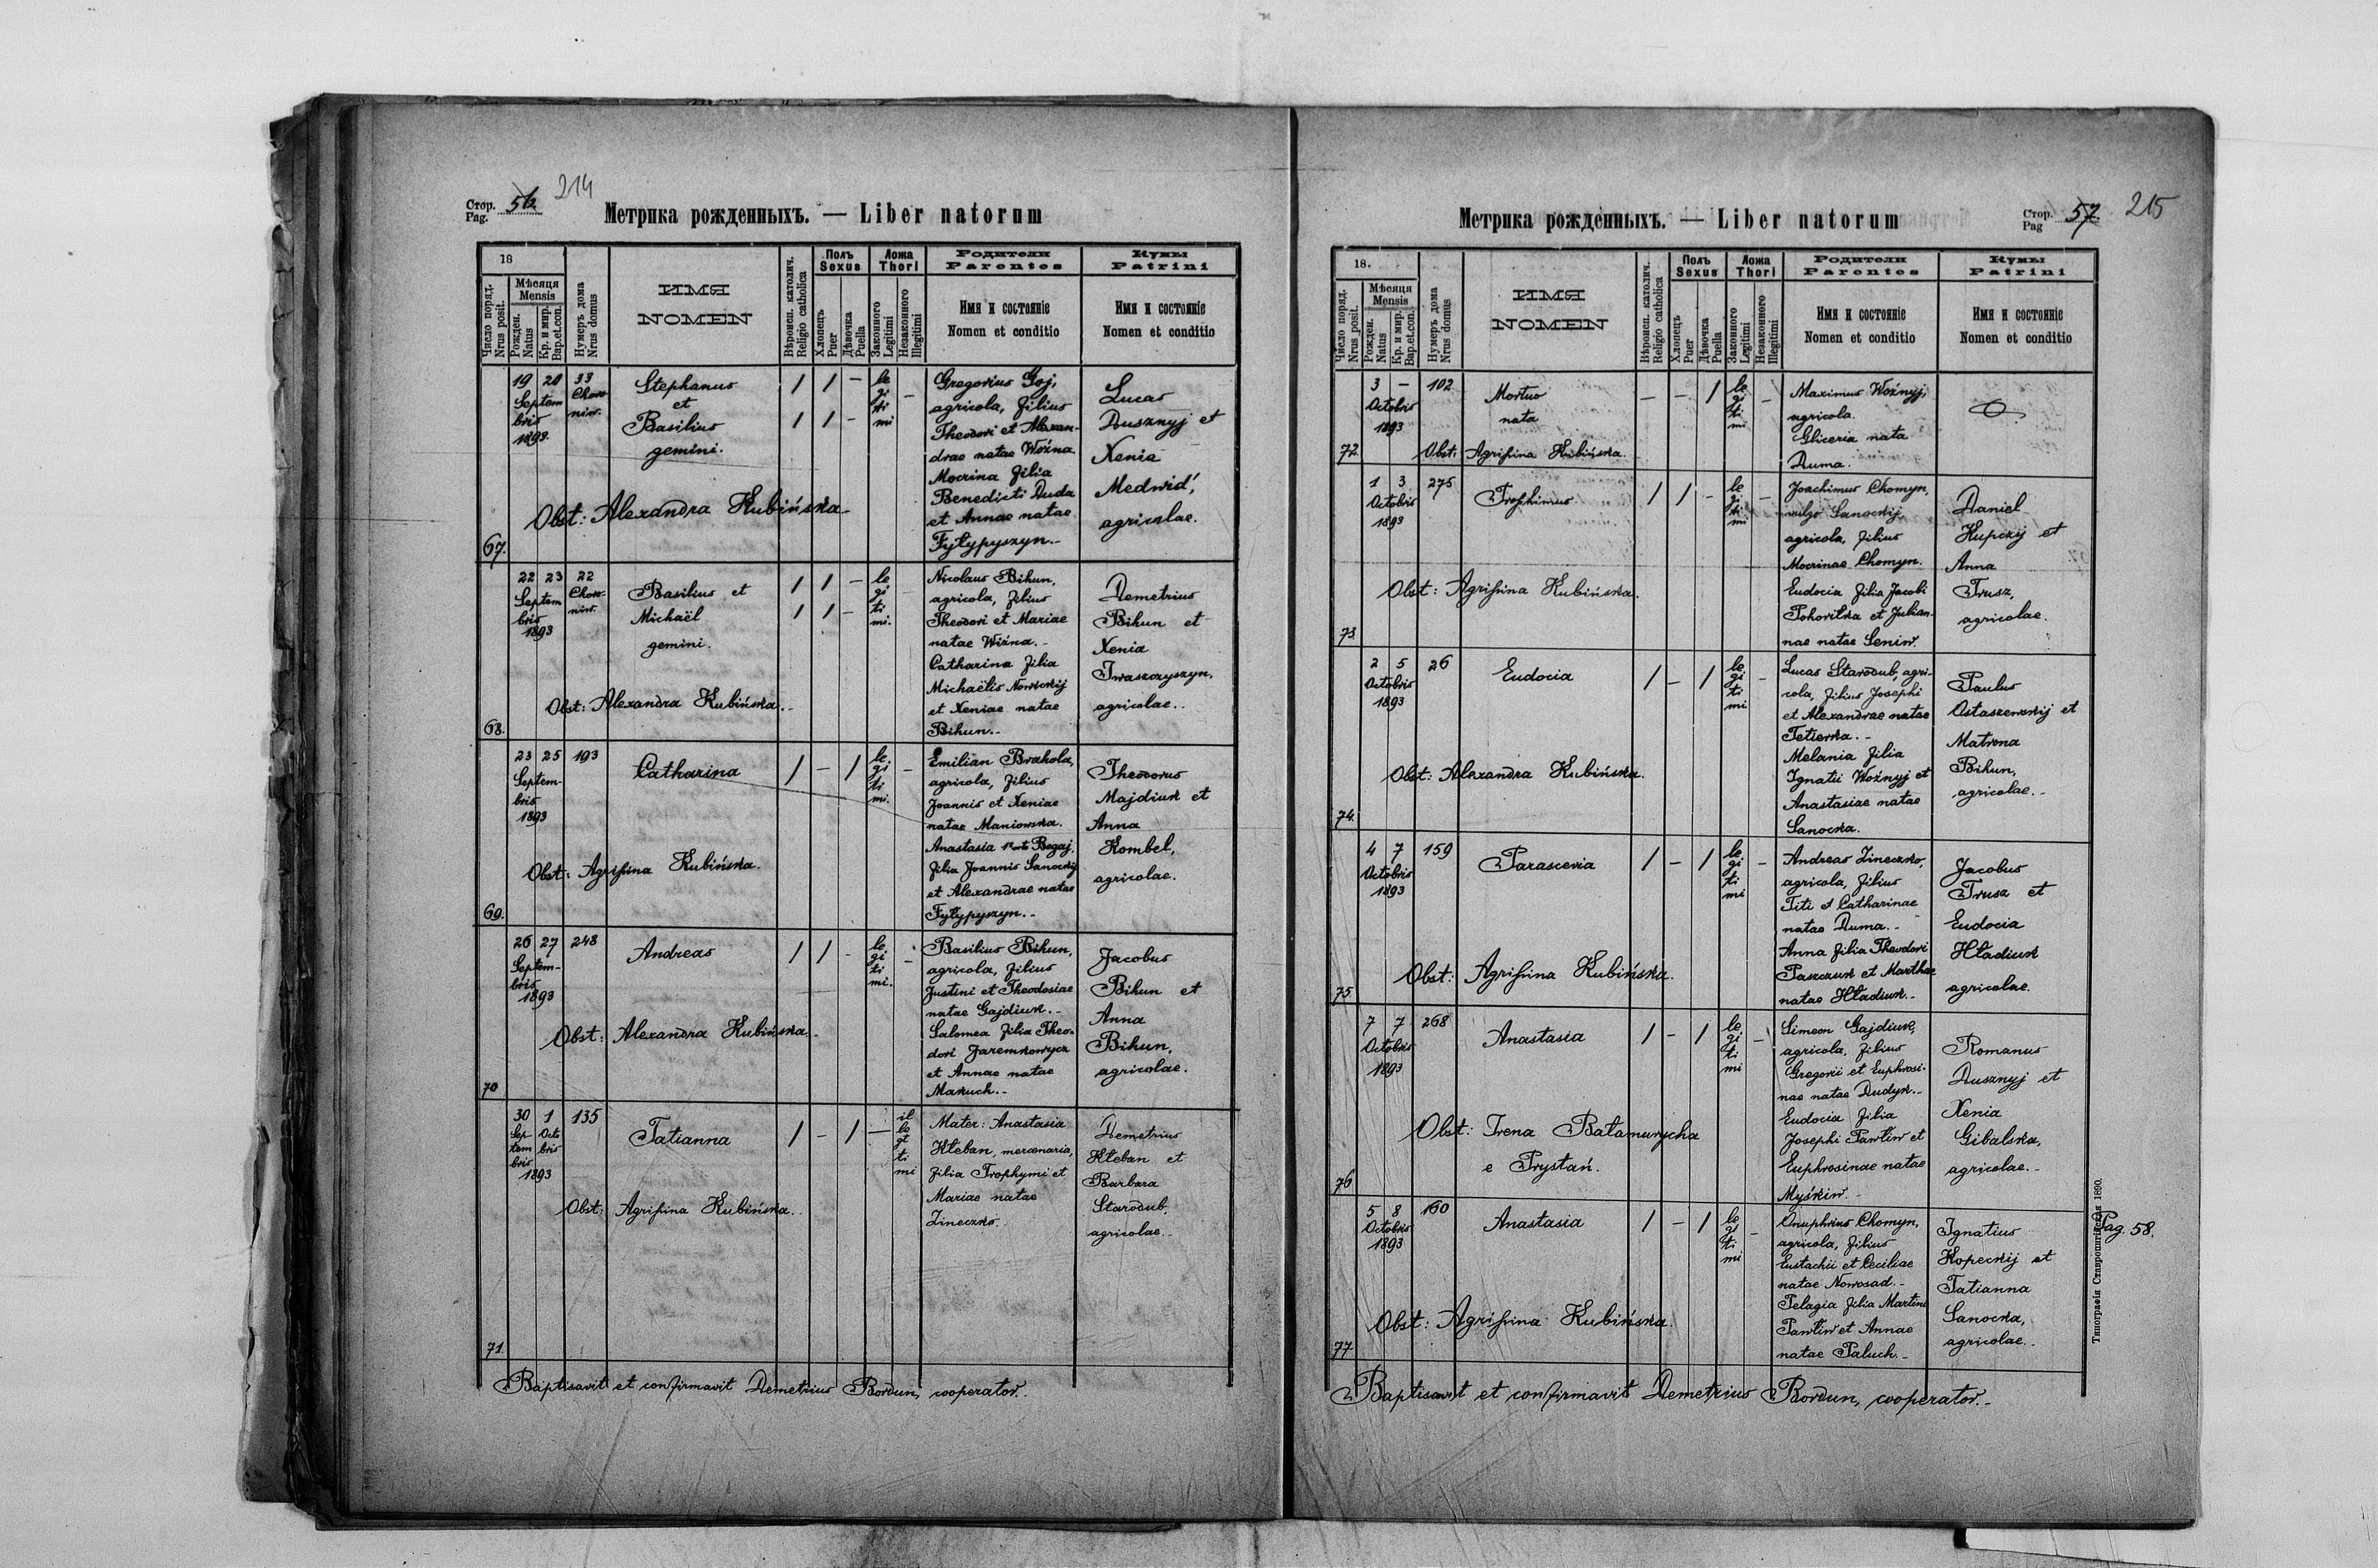 Стор. Pag. 56. 214
Метрика рожденныхъ. — Liber natorum
18
Число поряд. Nrus posit.
Мѣсяця Mensis
Рожден. Natus
Кр. и мир. Bap.et.con.
Нумеръ дома Nrus domus
ИМЯ
NOMEN
Вѣроисп. католич. Religio catholica
Полъ Sexus
Хлопецъ Puer
Дѣвочка Puella
Ложа Thori
Законного Legitimi
Незаконного Illegitimi
Родители Parentes
Имя и состояніе
Nomen et conditio
Кумы Patrini
Имя и состояніе
Nomen et conditio
67.
19 20 33
Septem
bris
1893.
Stephanus
et
Basilius
gemini.
1 1 –
1 1 –
le
gi
ti
mi
–
Gregorius Goj,
agricola, filius
Theodori et Alexan-
drae natae Woźna
Mocrina filia
Benedicti Duda
et Annae natae
Fyłypyszyn.-
Lucas
Dusznyj et
Xenia
Medwid',
agricolae.
Obst: Alexandra Kubińska.
68.
22 23 22
Septem
bris
1893
Basilius et
Michaël
gemini.
1 1 –
1 1 –
le
gi
ti
mi.
Nicolaus Bihun,
agricola, filius
Theodori et Mariae
natae Woźna.-
Catharina filia
Michaëlis Nowickij
et Xeniae natae
Bihun.-
Demetrius
Bihun et
Xenia
Iwaszczyszyn,
agricolae.
Obst: Alexandra Kubińska.
69.
23 25 193
Septem-
bris
1893
Catharina
1 – 1
le
gi
ti
mi.
–
Emilian Brahola,
agricola, filius
Joannis et Xeniae
natae Maniowska.
Anastasia
filia Joannis Sanockij
et Alexandrae natae
Fyłypyszyn.-
Theodorus
Majdiuk et
Anna
Kombel,
agricolae.
Obst: Agrifina Kubińska.
70
26 27 248
Septem-
bris
1893
Andreas
1 1 -
le
gi
ti
mi.
–
Basilius Bihun,
agricola, filius
Justini et Theodosiae
natae Gajdiuk.-
Salomea filia Theo-
dori Jaremkowycz
et Annae natae
Makuch.-
Jacobus
Bihun et
Anna
Bihun,
agricolae.
Obst: Alexandra Kubińska.
71.
30 1 135
Sep Octo
tem bris
bris
1893
Tatianna
1 – 1 –
il
le
gi
ti
mi
Mater: Anastasia
Kłeban, mercenaria,
filia Trophymi et
Mariae natae
Zineczko.
Demetrius
Kłeban et
Barbara
Starodub,
agricolae.
Obst: Agrifina Kubińska.
Baptisavit et confirmavit Demetrius Bordun, cooperator.
Метрика рожденныхъ. — Liber natorum
Стор. Pag 57. 215
18.
Число поряд. Nrus posit.
Мѣсяця Mensis
Рожден. Natus
Кр. и мир. Bap.et.con.
Нумеръ дома Nrus domus
ИМЯ
NOMEN
Вѣроисп. католич. Religio catholica
Полъ Sexus
Хлопецъ Puer
Дѣвочка Puella
Ложа Thori
Законного Legitimi
Незаконного Illegitimi
Родители Parentes
Имя и состояніе
Nomen et conditio
Кумы Patrini
Имя и состояніе
Nomen et conditio
72.
3 – 102
Octobris
1893
Mortuo
nata
– – 1
le
gi
ti
mi
–
Maximus Woźnyj,
agricola.
Gliceria nata
Duma.
Obst: Agrifina Kubińska.
73.
1 3 275
Octobris
1893
Trophimus
1 1 –
le
gi
ti
mi
–
Joachimus Chomyn,
vulgo Sanockij,
agricola, filius
Mocrinae Chomyn.
Eudocia filia Jacobi
Pohoriłka et Julian-
nae natae Seniw.
Daniel
Kupczij et
Anna
Trusz,
agricolae.
Obst: Agrifina Kubińska.
74.
2 5 26
Octobris
1893
Eudocia
1 – 1
le
gi
ti
mi
–
Lucas Starodub, agri-
cola, filius Josephi
et Alexandrae natae
Tetierka.-
Melania filia
Ignatii Woźnyj et
Anastasiae natae
Sanocka.
Paulus
Ostaszewskij et
Matrona
Bihun,
agricolae.-
Obst: Alexandra Kubińska.
75
4 7 159
Octobris
1893
Parascevia
1 – 1
le
gi
ti
mi
–
Andreas Zineczko,
agricola, filius
Titi et Catharinae
natae Duma.-
Anna filia Theodori
Paszczuk et Marthae
natae Hładiuk.-
Jacobus
Trusz et
Eudocia
Hładiuk
agricolae.
Obst: Agrifina Kubińska.
76
7 7 268
Octobris
1893
Anastasia
1 – 1
le
gi
ti
mi
–
Simeon Gajdiuk,
agricola, filius
Gregorii et Euphrosi-
nae natae Dudyk.-
Eudocia filia
Josephi Pawliw et
Euphrosinae natae
Myśkiw.-
Romanus
Dusznyj et
Xenia
Gibalska,
agricolae.-
Obst: Irena Bałamurycha
e Prystań.
77
5 8 160
Octobris
1893
Anastasia
1 – 1
le
gi
ti
mi
–
Onuphrius Chomyn,
agricola, filius
Eustachii et Ceciliae
natae Nowosad.-
Pelagia filia Martini
Pawliw et Annae
natae Paluch.-
Ignatius
Kopeckij et
Tatianna
Sanocka,
agricolae.-
Obst: Agrifina Kubińska.
Baptisavit et confirmavit Demetrius Bordun, cooperator.-
Pag. 58.
Типографія Ставропигійская 1890.